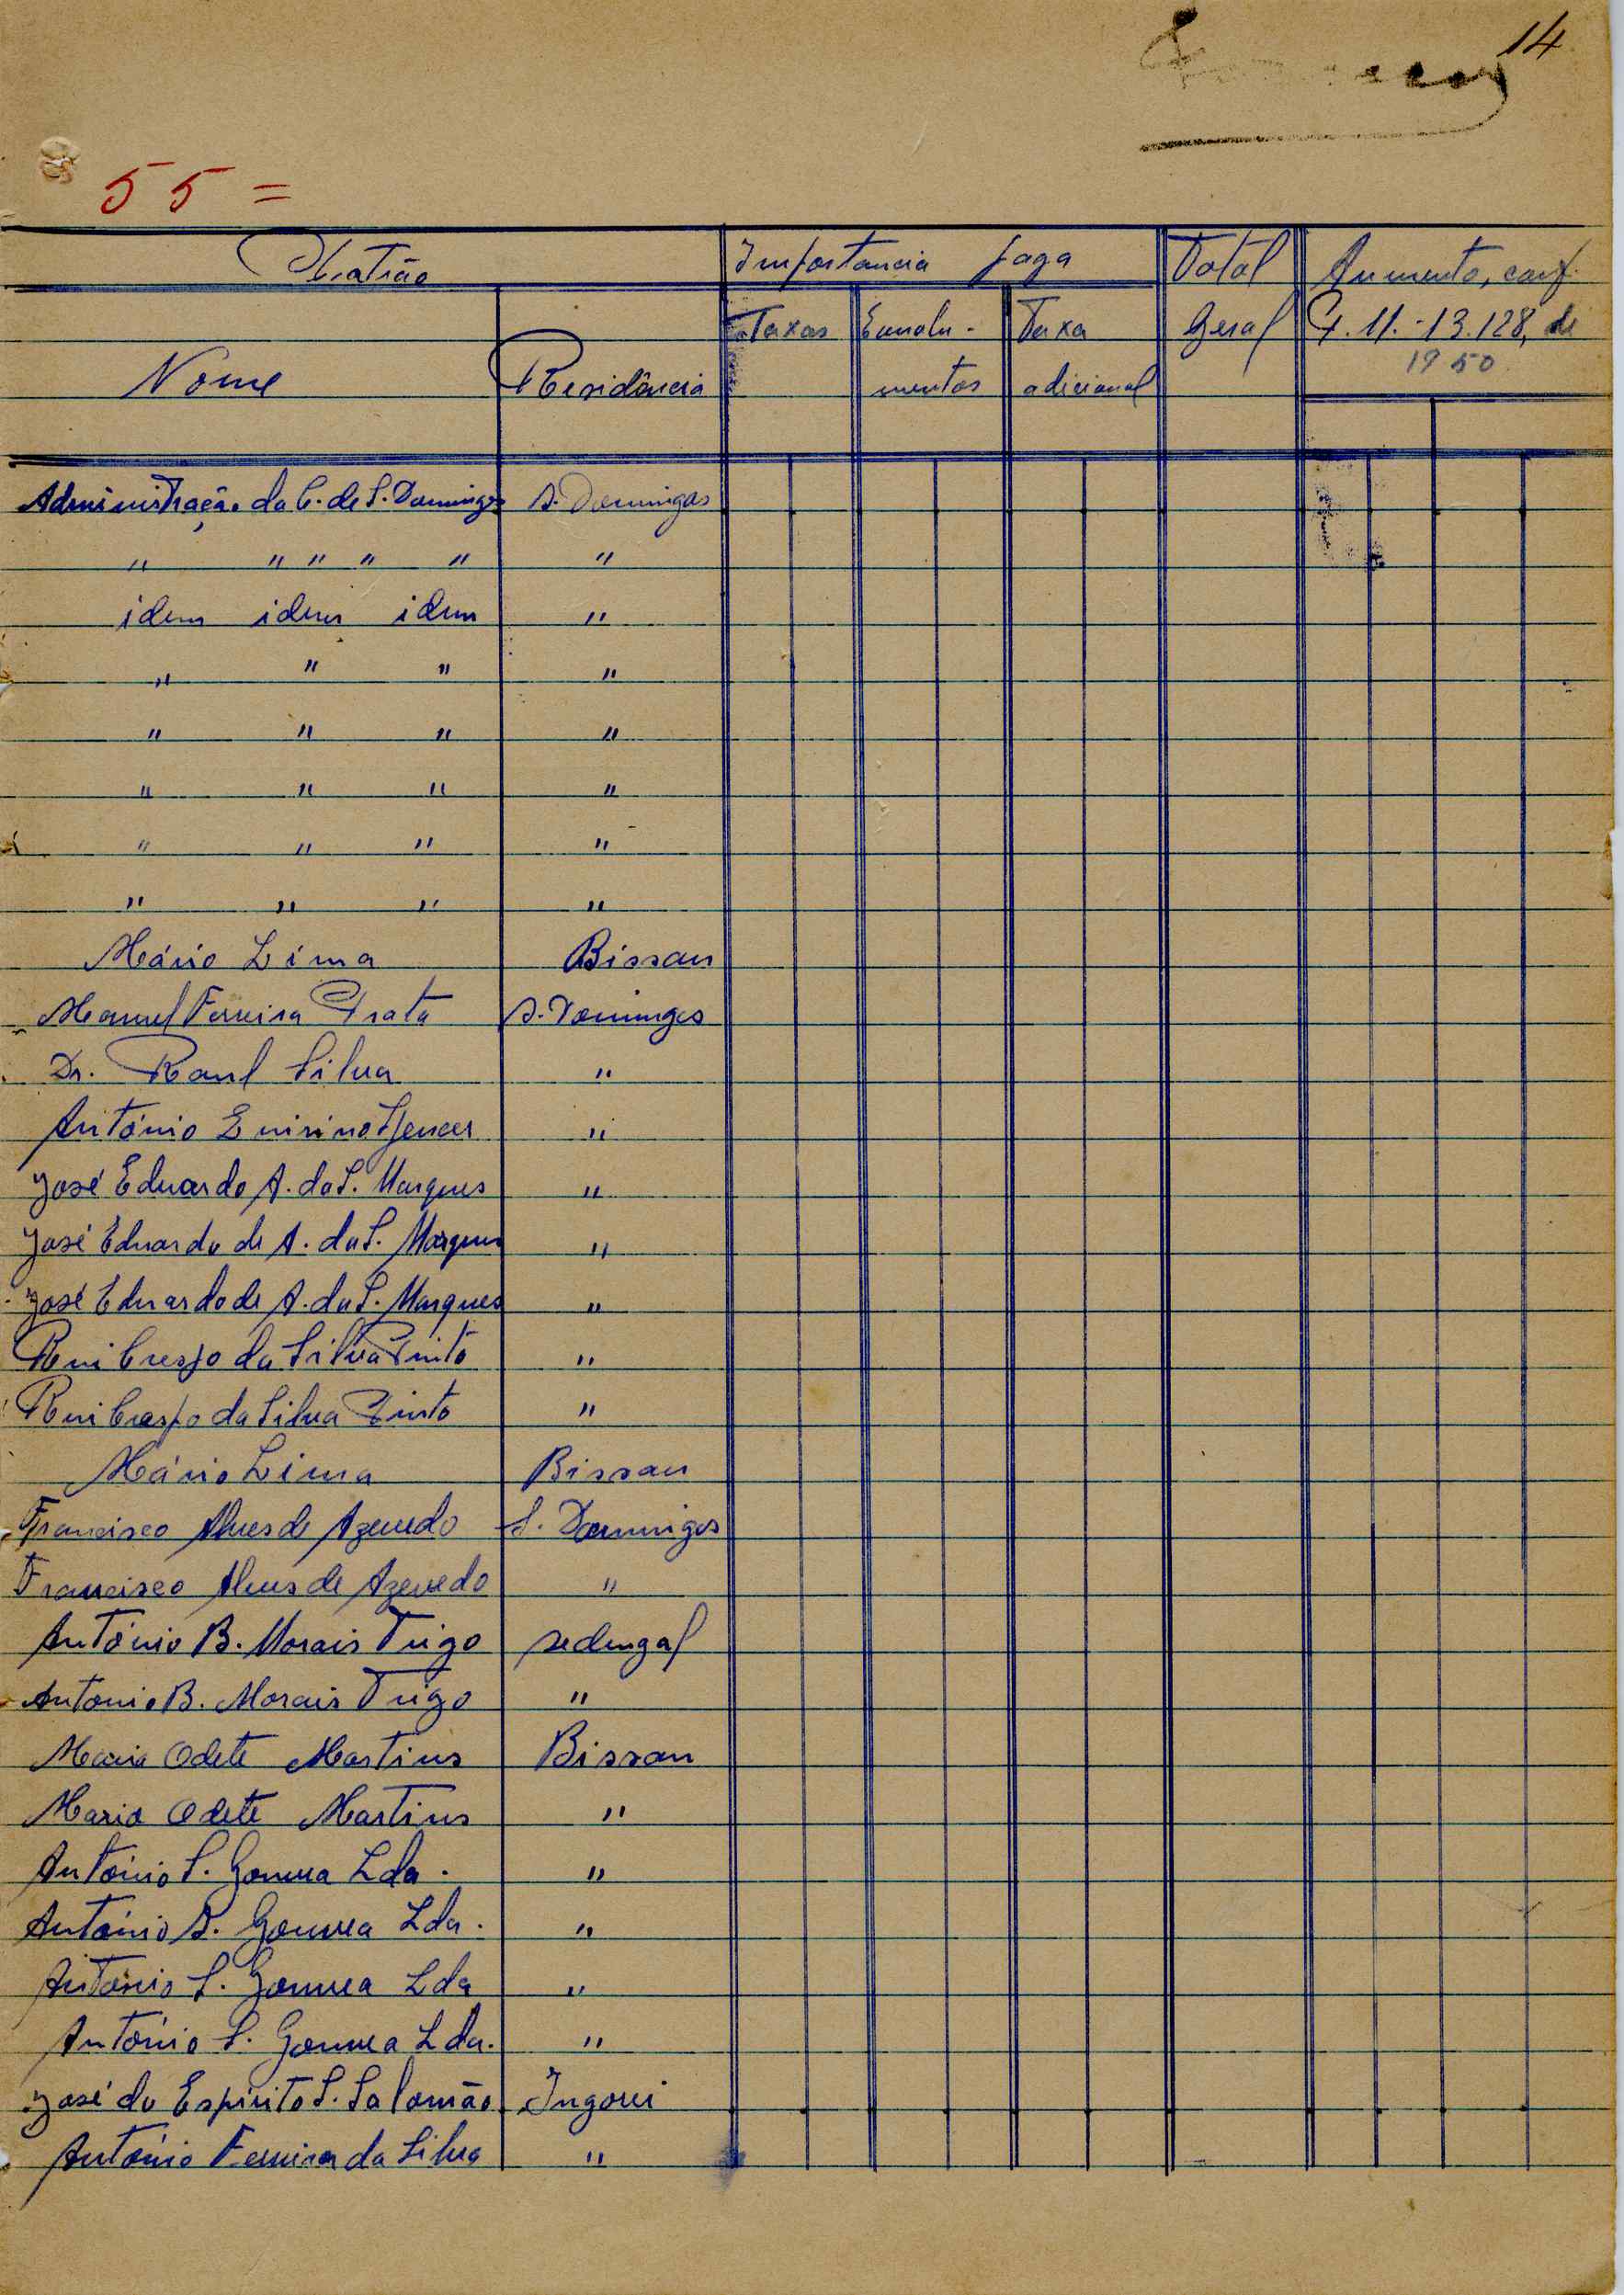 14
55 =
Patrão Importancia paga Total Aumento, conf.
Taxas Emolu- Taxa Geral 11.-13.128, de
1950
Nome Residência mentos adicional
Administração da C. de S. Domingos S. Domingos
" " " " " "
idem idem idem "
" " " "
" " " "
" " " "
" " " "
" " " "
Mário Lima Bissau
Manuel Ferreira Prata S. Domingos
" Dr. Raul Silva "
António "
José Eduardo A. da S. Marques "
José Eduardo de A. da S. Marques "
José Eduardo de A. da S. Marques "
Rui Crespo da Silva Pinto "
Rui Crespo da Silva Pinto "
Mário Lima Bissau
Francisco Alves de Azevedo S. Domingos
Francisco Alves de Azevedo "
António B. Morais Trigo sedengal
Antonio B. Morais Trigo "
Maria Odete Martins Bissau
Maria Odete Martins "
António S. Gouvea Lda. "
António S. Gouvea Lda. "
António S. Gouvea Lda "
António S. Gouvea Lda. "
José do Espirito S. Salomão Ingoré
António Ferreira da Silva "